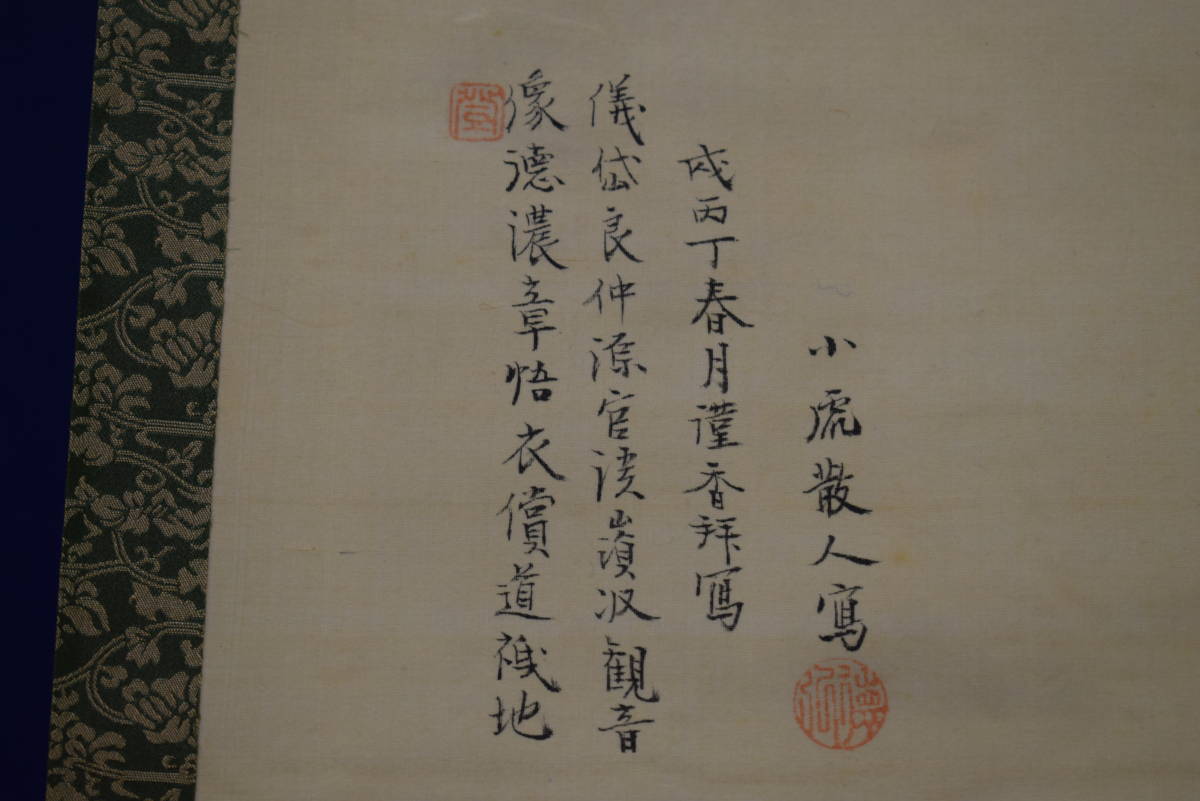 小虎散人寫
戌丙丁春月謹香拜寫
儀岱良仲源官渓嶺汲観音
像德濃章悟衣償道禨地